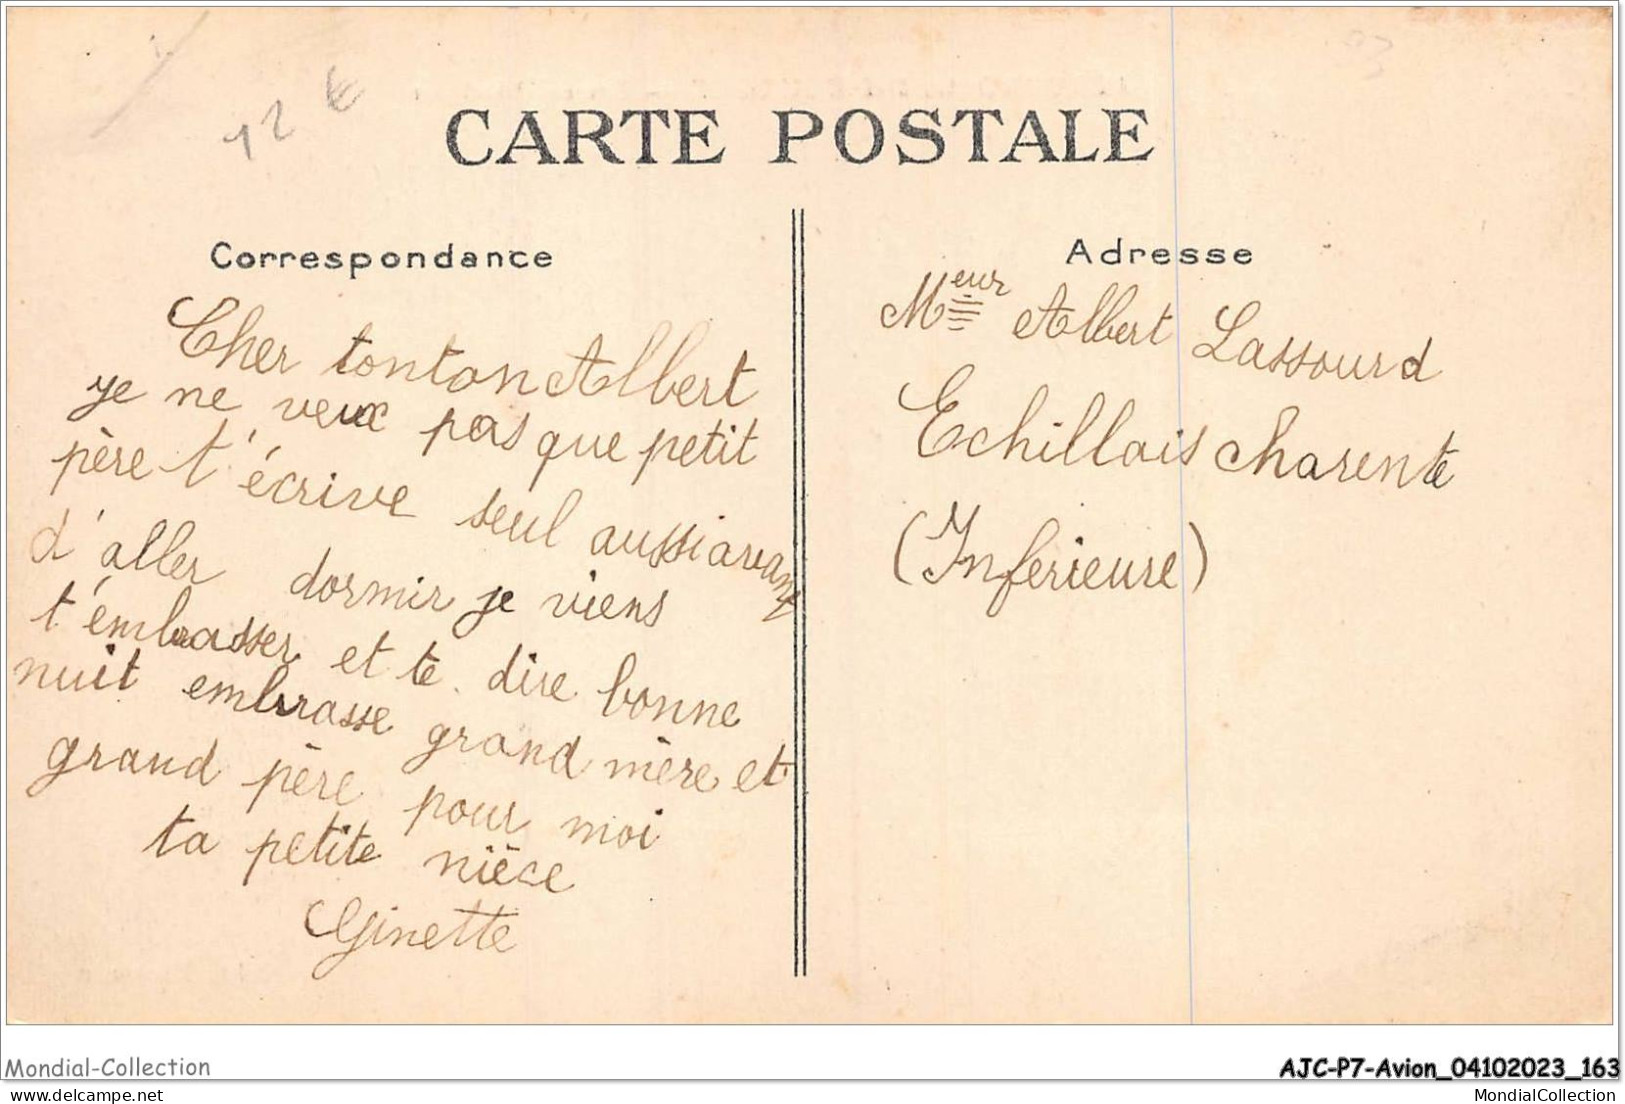 12 €
CARTE POSTALE
Correspondance
Cher tonton Albert
je ne veux pas que petit
père t'écrive seul aussi avant
d'aller dormir je viens
t'émbrasser et te dire bonne
nuit embrasse grand mère et
grand père pour moi
ta petite nièce
Ginette
Adresse
Meur Albert Lassourd
Echillais Charente
(Inferieure)
Mondial-Collection
AJC-P7-Avion_04102023_163
MondialCollection
MondialCollection